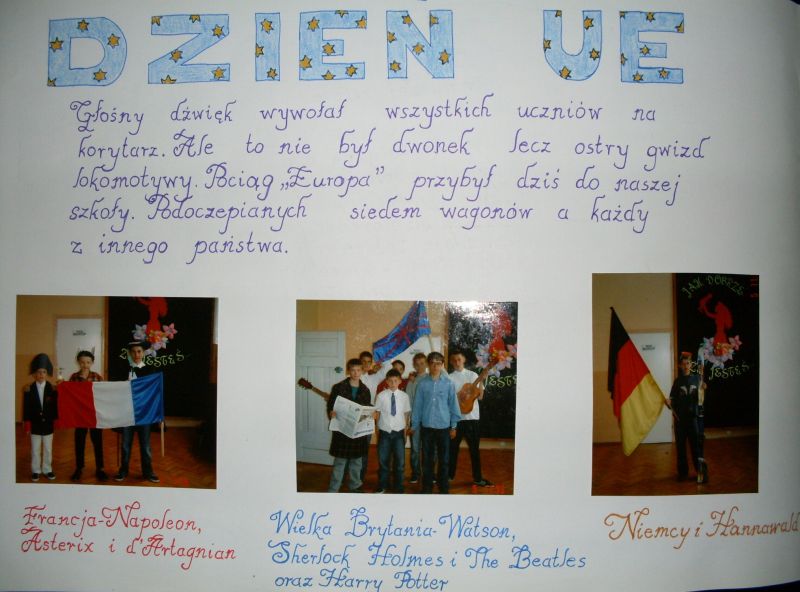 DZIEŃ UE
Głośny dźwięk wywołał wszystkich uczniów na
korytarz. Ale to nie był dwonek lecz ostry gwizd
lokomotywy. Pociąg „Europa” przybył dziś do naszej
szkoły. Podoczepianych siedem wagonów a każdy
z innego państwa.
JAK DOBRZE
JESTEŚ
JESTEŚ
Francja-Napoleon,
Asterix i d'Artagnian
Wielka Brytania-Watson,
Sherlock Holmes i The Beatles
oraz Harry Potter
Niemcy i Hannawald